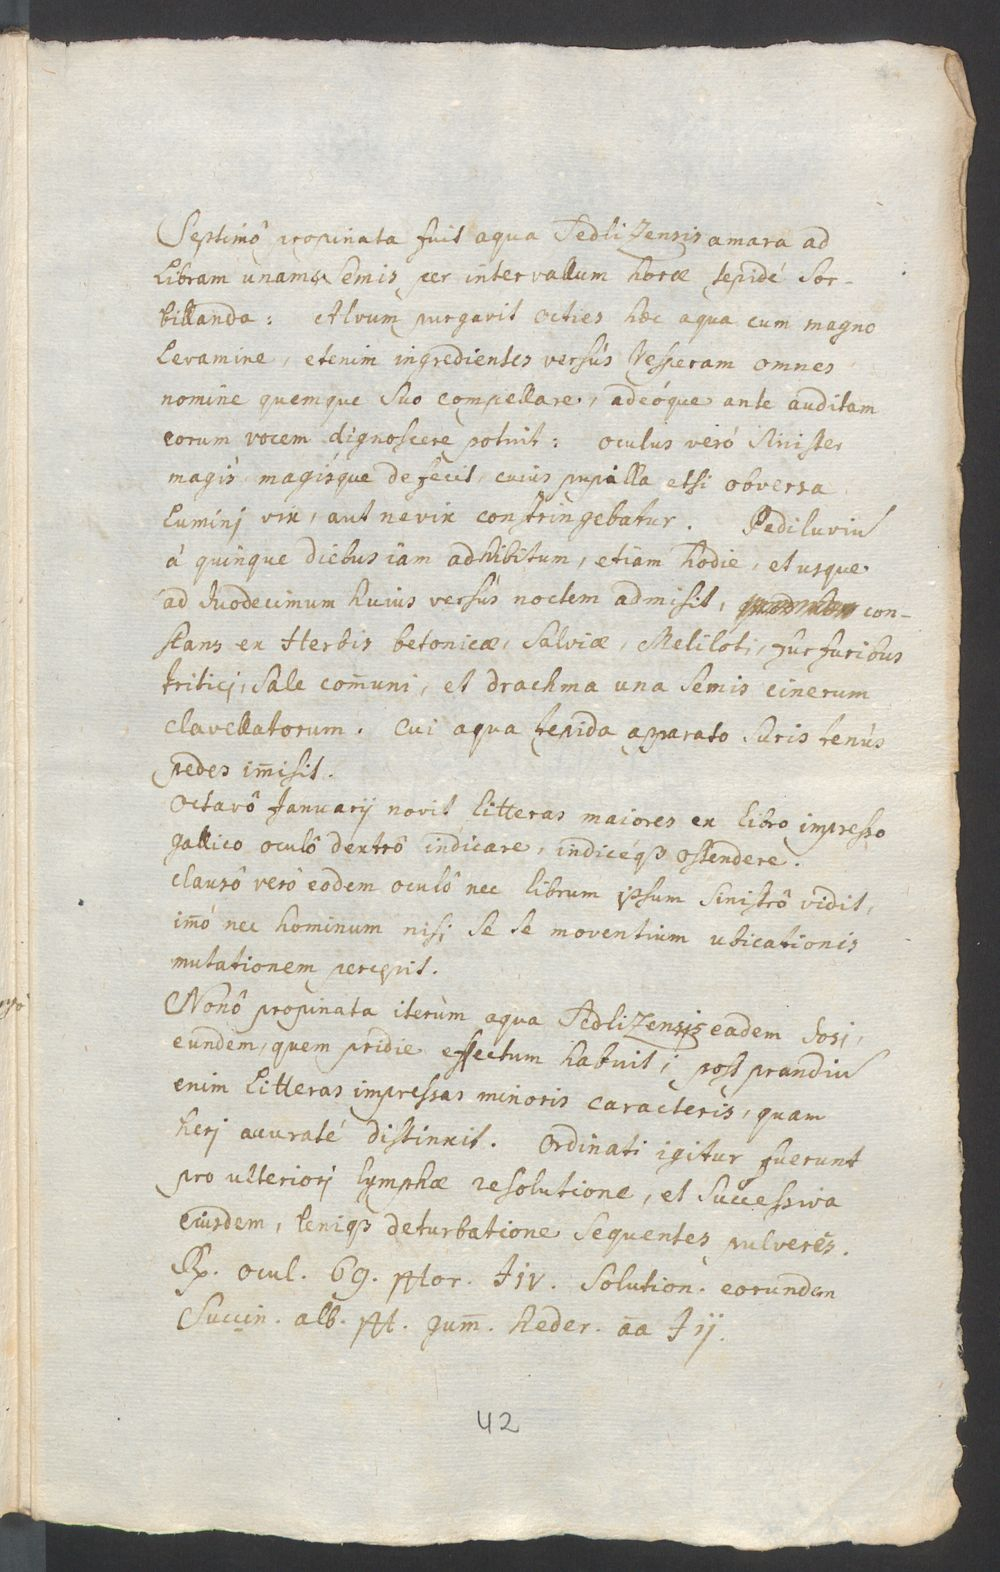 Septimô propinata fuit aqua Sedlizensis amara ad
libram unam & semis per intervallum horæ tepidè sor-
billanda: Alvum purgavit octies hæc aqua cum magno
levamine, etenim ingredientes versùs Vesperam omnes
nomine quemque suo compellare, adeóque ante auditam
eorum vocem dignoscere potuit: oculus veró sinister
magis magísque defecit, cuius pupilla etsi obversa
luminj vix, aut ne vix constringebatur. Pediluviū
á quinque diebus iam adhibitum, etiam hodie, et usque
ad duodecimum huius versùs noctem admisit, con-
stans ex Herbis betonicæ, Salviæ, Meliloti, furfuribus
triticj, Sale com̄uni, et drachma una semis cinerum
clavellatorum. Cui aqua tepida apparato suris tenùs
pedes im̄isit.
Octavô Januarij novit litteras maiores ex libro impresso
gallico oculô dextrô indicare, indicéqȝ ostendere.
clausô verò eodem oculô nec librum ipsum sinistrô vidit,
im̄ó nec hominum nisj se se moventium ubicationis
mutationem percepit.
Nonô propinata iterùm aqua Sedlizensis eadem dosj,
eundem, quem pridie effectum habuit; post prandiū
enim litteras impressas minoris caracteris, quam
herj accuraté distinxit. Ordinati igitur fuerunt
pro ulteriorj lymphæ resolutione, et successiva
eiusdem, leniqȝ deturbatione sequentes pulveres.
Rp. ocul. 69. pptor. ʒiv. solution. eorundem
Succin. alb. ppt. gum̄. heder. aa ʒij.
42